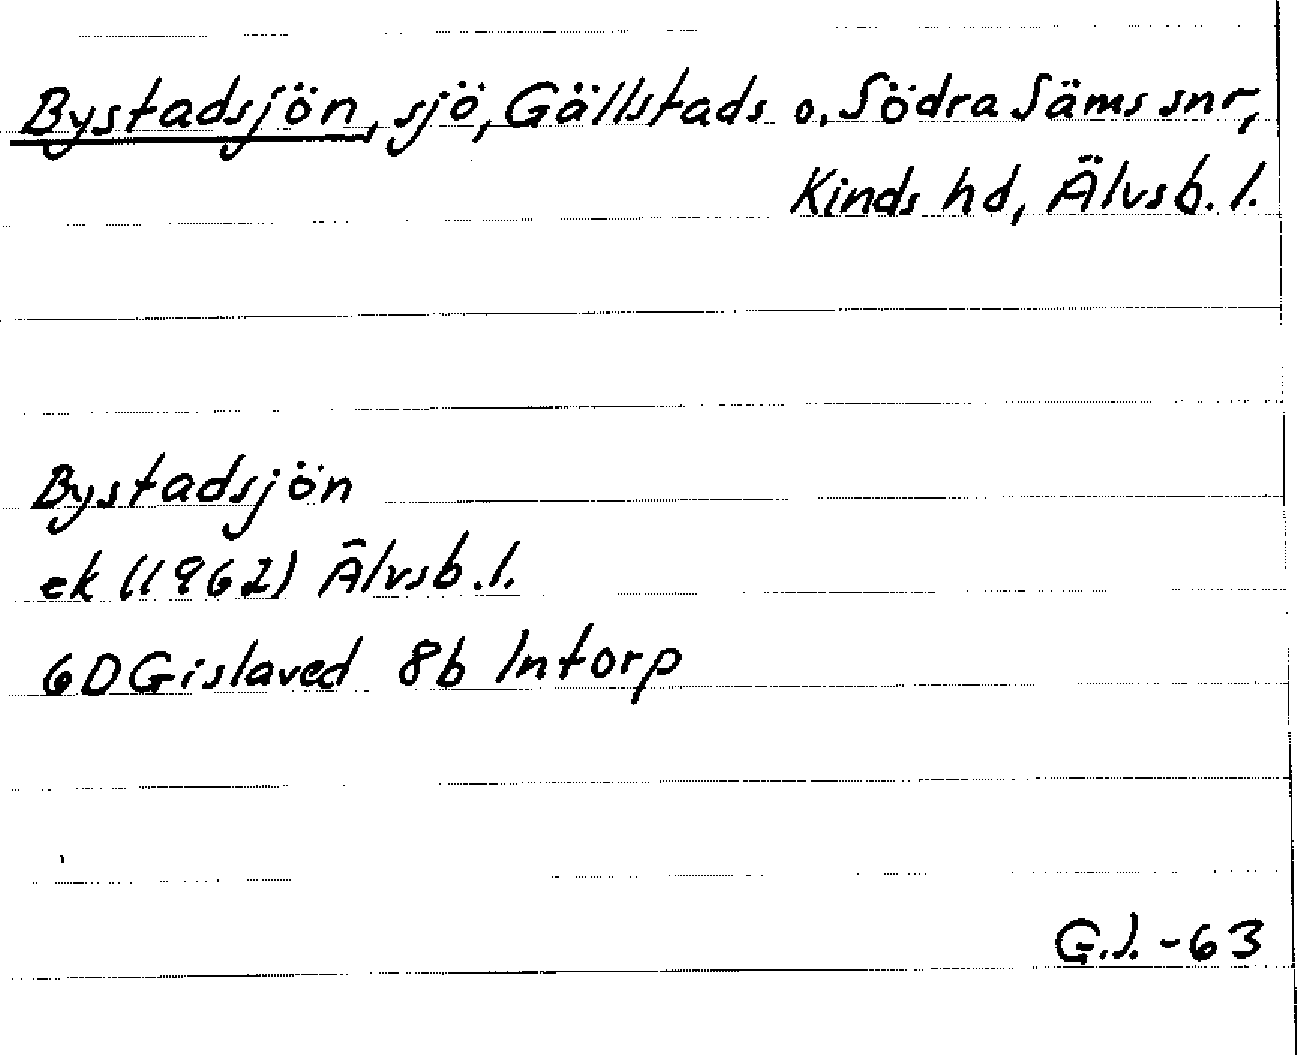 Bystadsjön, sjö, Gällstads o. Södra Säms snr,
Kinds hd, Älvsb. l.
Bystadsjön
ek (1962) Älvsb. l.
6D Gislaved 8b Intorp
G.J. -63